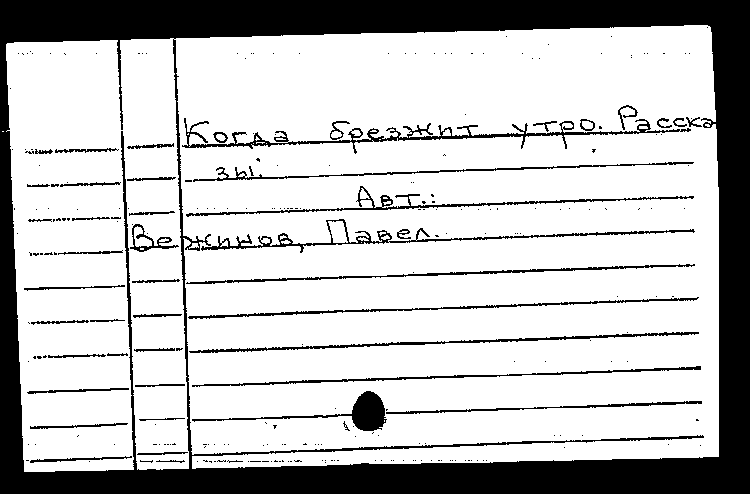 Когда брезжит утро. Расска-
зы.
Авт.:
Вежинов, Павел.